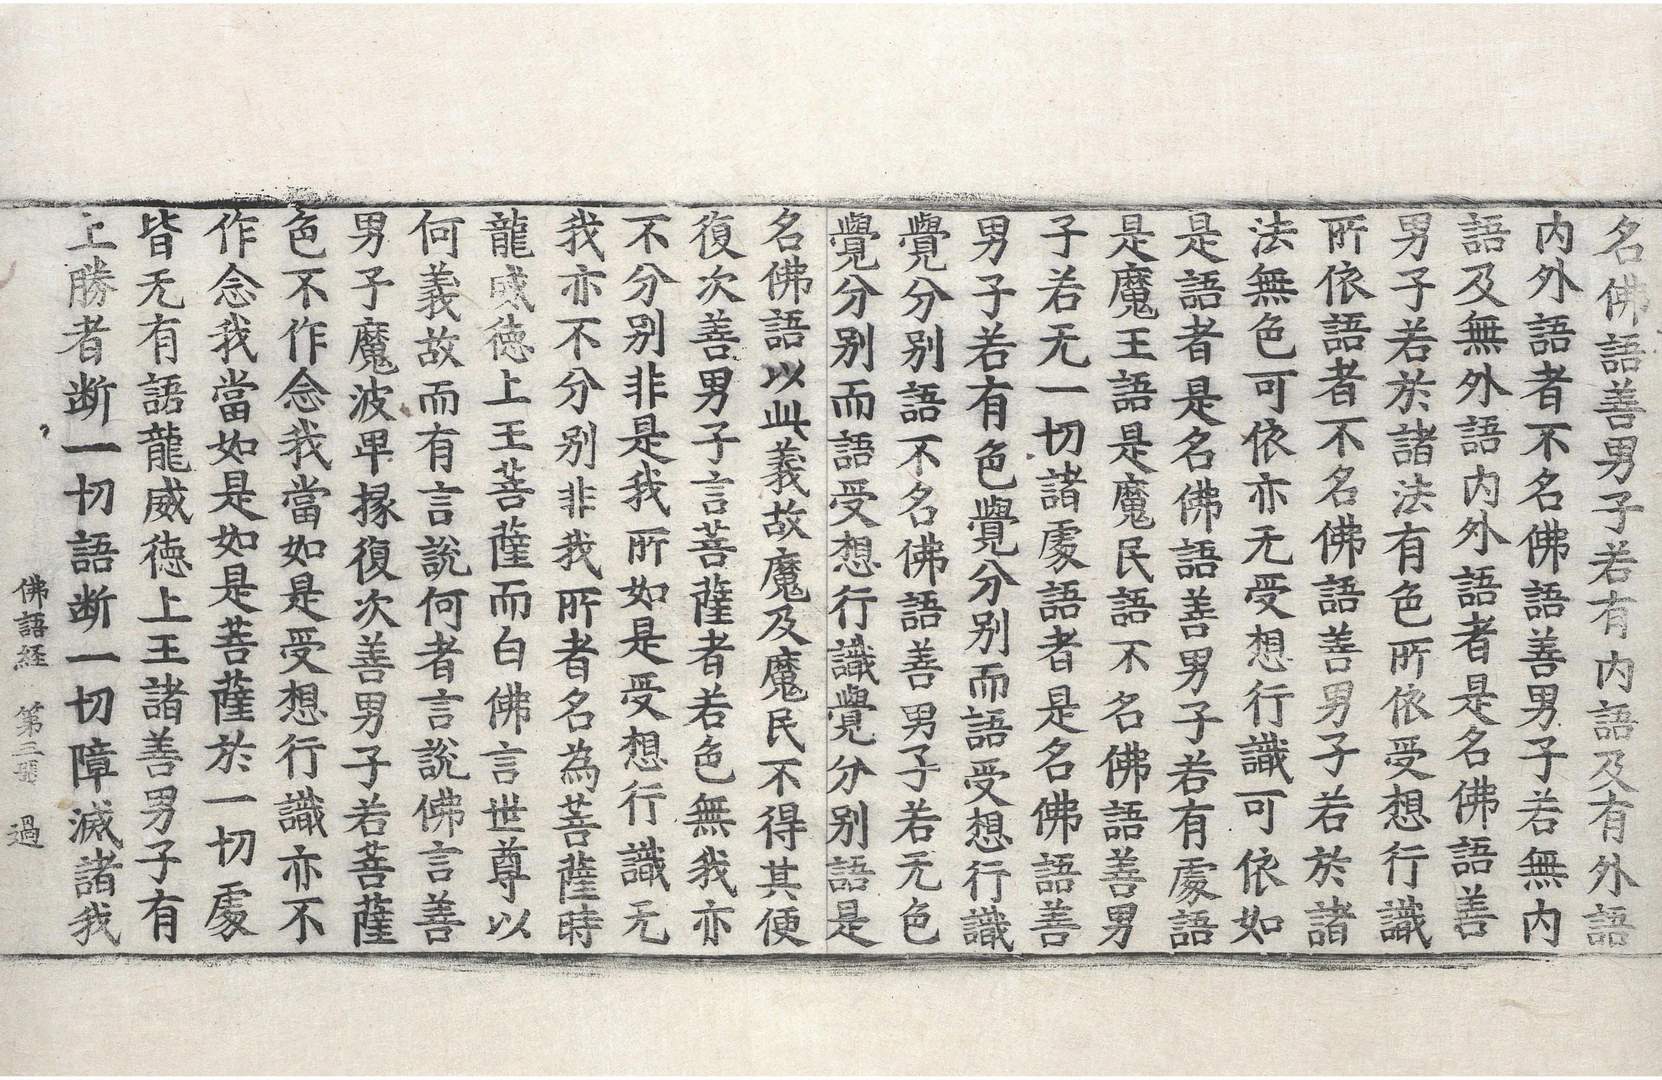 名佛語善男子若有内語及有外語
内外語者不名佛語善男子若無内
語及無外語内外語者是名佛語善
男子若於諸法有色所依受想行識
所依語者不名佛語善男子若於諸
法無色可依亦无受想行識可依如
是語者是名佛語善男子若有處語
是魔王語是魔民語不名佛語善男
子若无一切諸處語者是名佛語善
男子若有色覺分别而語受想行識
覺分别語不名佛語善男子若无色
覺分别而語受想行識覺分别語是
名佛語以此義故魔及魔民不得其便
復次善男子言菩薩者若色無我亦
不分别非是我所如是受想行識无
我亦不分别非我所者名為菩薩時
龍威徳上王菩薩而白佛言世尊以
何義故而有言說何者言說佛言善
男子魔波卑掾復次善男子若菩薩
色不作念我當如是受想行識亦不
作念我當如是如是菩薩於一切處
皆无有語龍威徳上王諸善男子有
上勝者断一切語断一切障滅諸我
佛語経 第三張 過